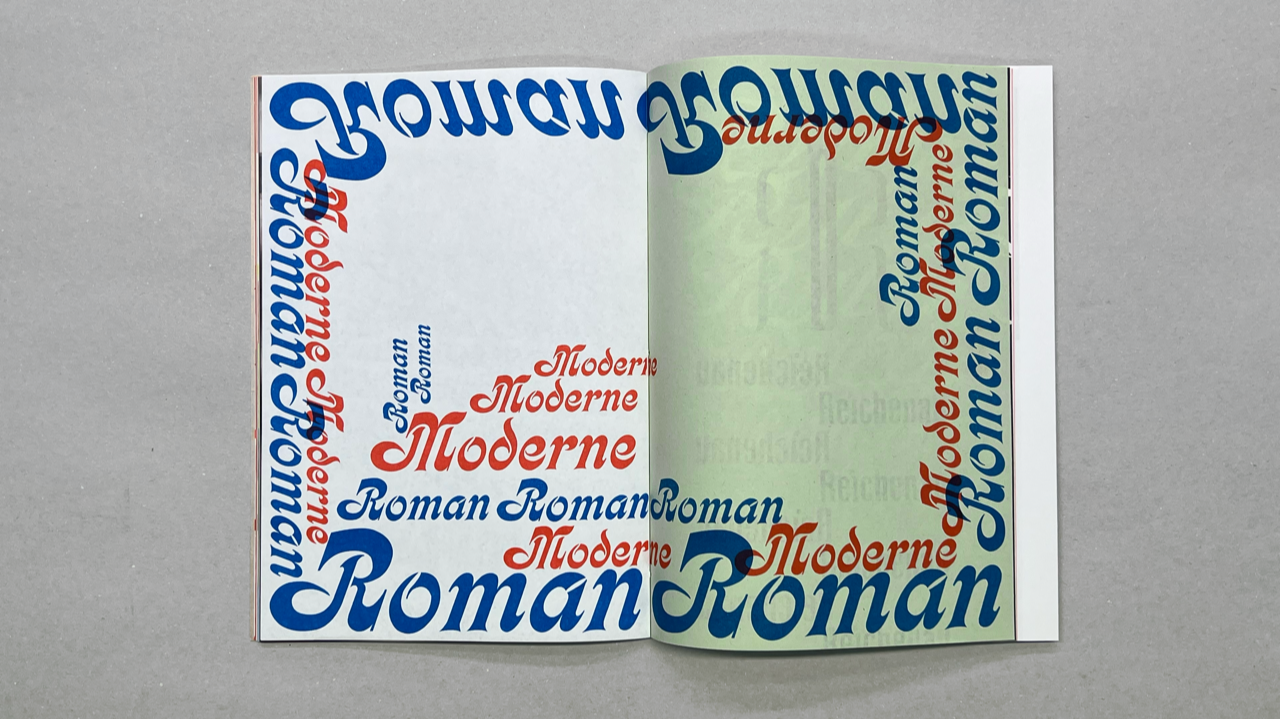 Roman Roman
Moderne
Roman Roman
Moderne Moderne
Roman
Roman
Moderne
Moderne
Moderne
Roman Roman Roman
Moderne Moderne
Roman Roman
Roman
Moderne Moderne
Roman Roman
Reichenau
Reichenau